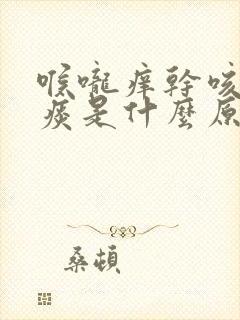 喉嚨痒幹咳
痰是什麼原
桑頓